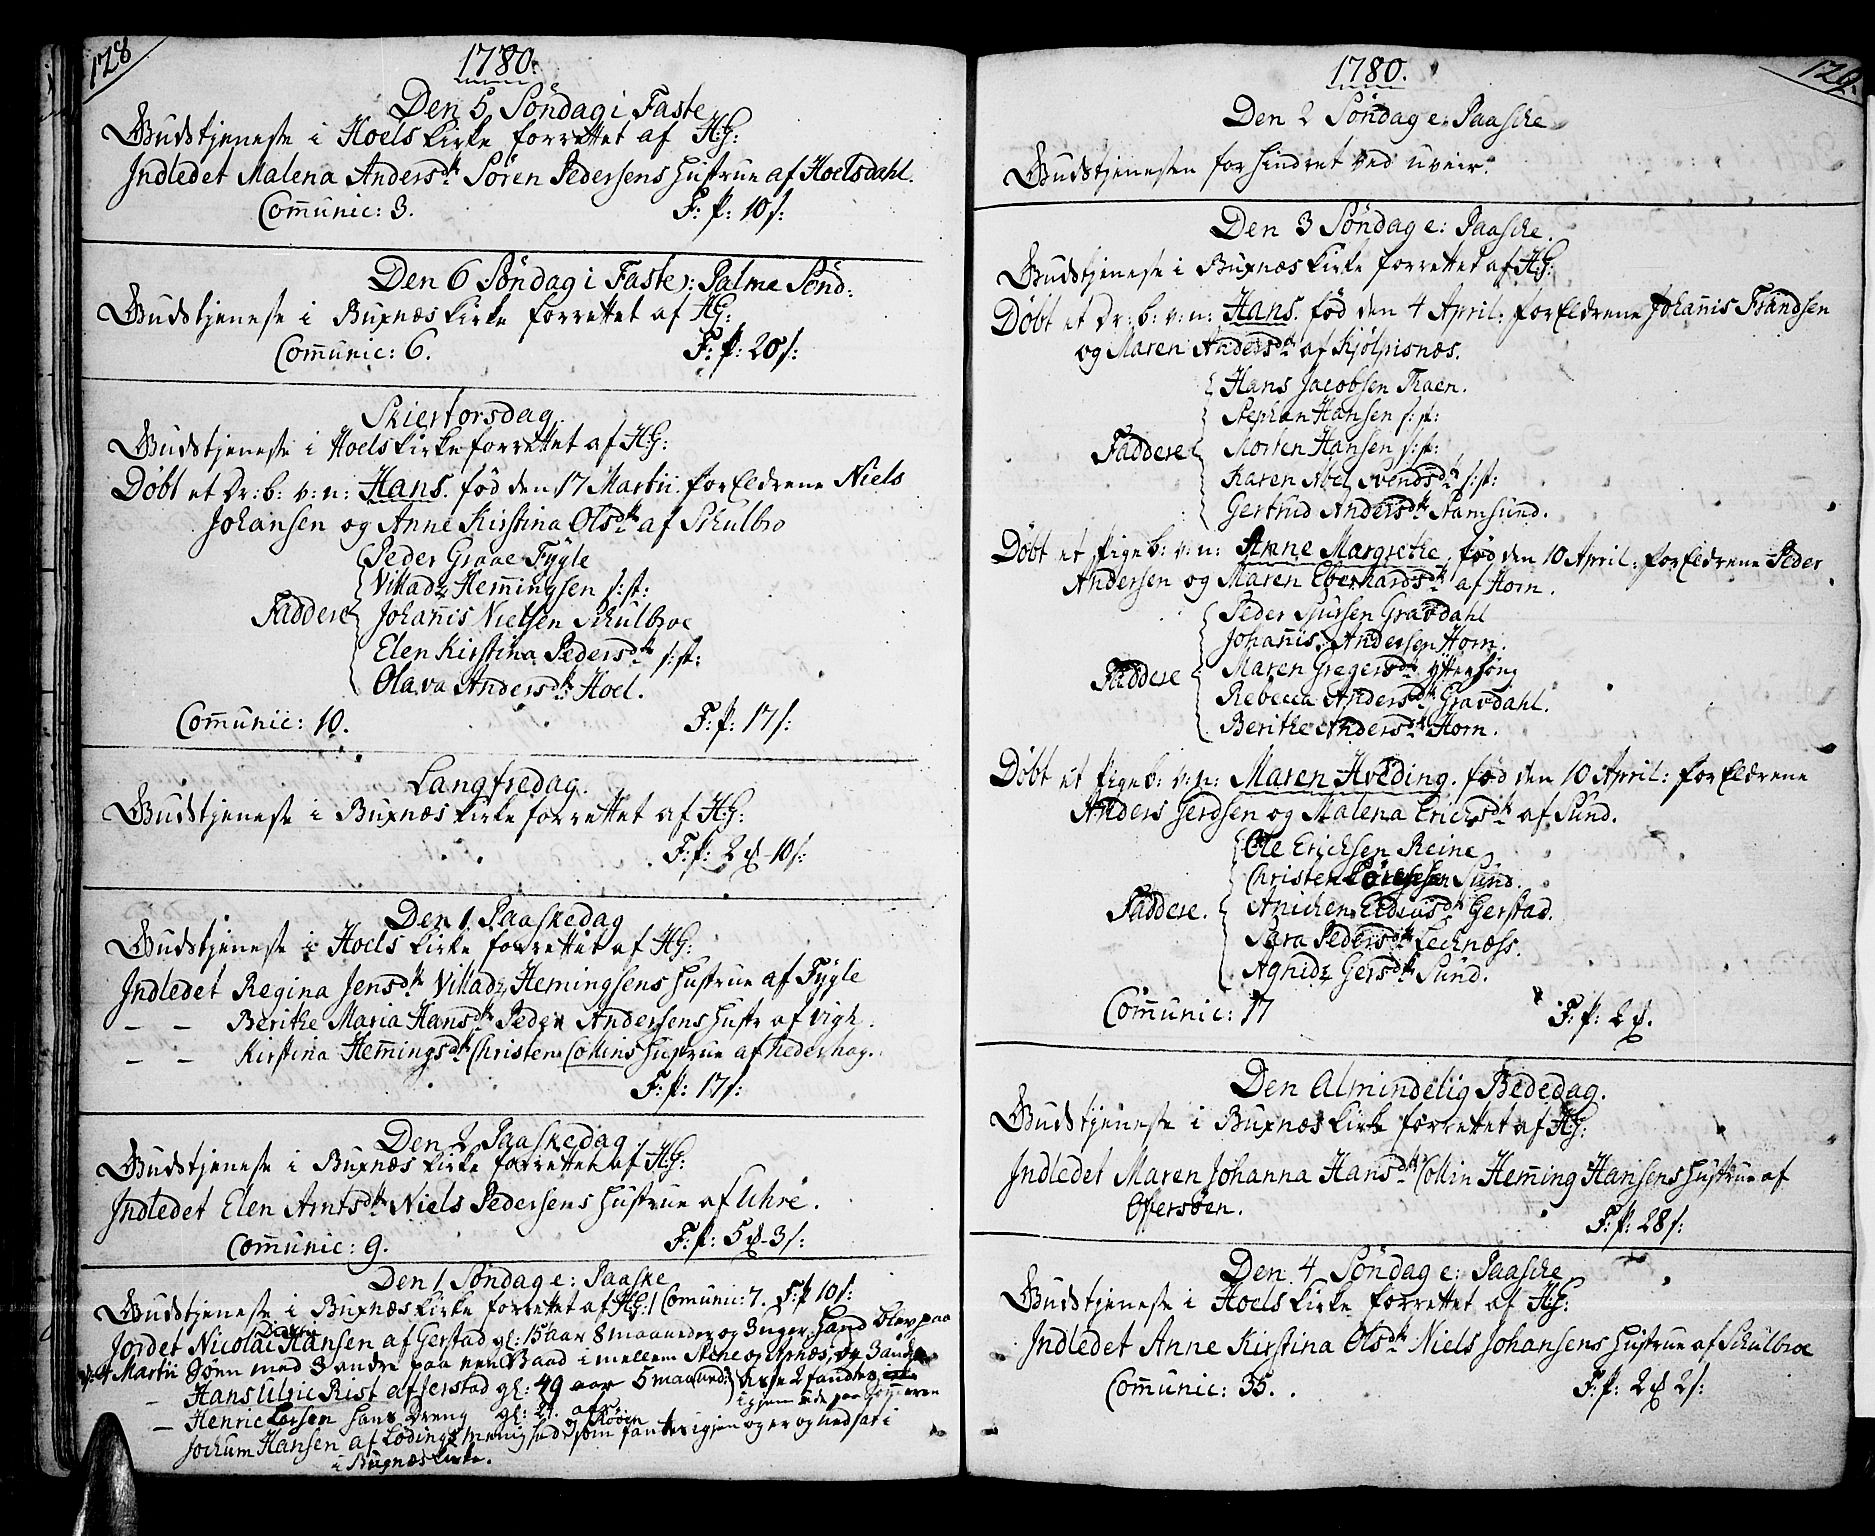 128
1780.
Den 5 Søndag i Faste
Gudstjeneste i Hoels Kirke forrettet af H:G:
Indledet Malena Andersdtr Søren Pedersens Hustrue af Hoelsdahl.
Comunic: 3. F: P: 10 s:
Den 6 Søndag i Faste): Palme Sønd:
Gudstjeneste i Buxnæs Kirke forrettet af H:G:
Comunic: 6. F: P: 20 s:
Skiertorsdag.
Gudstjeneste i Hoels Kirke forrettet af H:G:
Døbt et Dr: b: v: n: Hans. fød den 17 Martii. forEldrene Niels
Johansen og Anne Kirstina Olsdtr af Schulbro
Peder Graae Fygle
Villadz Hemingsen s: st:
Faddere Johannis Nielsen Schulbroe
Elen Kirstina Pedersdtr s: st:
Olava Andersdtr Hoel.
Comunic: 10. F: P: 17 s:
Langfredag.
Gudstjeneste i Buxnæs Kirke forrettet af H:G:
F: P: 2 d - 10 s:
Den 1. Paaskedag
Gudstjeneste i Hoels Kirke forrettet af H:G:
Indledet Regina Jensdtr Villadz Hemingsens Hustrue af Fygle
— — Berithe Maria Hansdtr Peder Andersens Hustr af Vigh.
— — Kirstina Hemingsdtr Christen Collins Hustrue af Nederhag.
F: P: 17 s:
Den 2 Paaskedag.
Gudstjeneste i Buxnæs Kirke forrettet af H:G:
Indledet Elen Arntsdtr Niels Pedersens Hustrue af Uhre.
Comunic: 9. F: P: 5 d - 3 s:
Den 1 Søndag e: Paaske
Gudstjeneste i Buxnæs Kirke forrettet af H:G: Comunic: 7. F: P 10 s:
Jordet Nicolai Hansen af Gerstad gl: 15 aar 8 maaneder og 3 uger, hand blev paa
Martii Søen med 3 andre paa een Baad i mellem og Arnæs, og 3
— Hans Ulric Rist af Jerstad gl: 49 aar 5 maaned: disse 2 fandtes
— Henric Larsen hans Dreng gl: 21 aar igjen ude paa
Jochum Hansen af Lødings menighed som fandtes igjen og er og nedsat i
i Buxnæs Kirke.
129.
1780.
Den 2 Søndag e: Paasche
Gudstjenesten forhindret ved uveir.
Den 3 Søndag e: Paasche.
Gudstjeneste i Buxnæs Kirke forrettet af H:G:
Døbt et Dr: b: v: n: Hans. fød den 4 April: forEldrene Johannis Frandsen
og Maren Andersdtr af Kjølpisnæs.
Hans Jacobsen Thoen.
Stephen Hansen s: st:
Faddere Morten Hansen s: st:
Karen Abel Svendsdtr s: st:
Gertrud Andersdtr Stamsund.
Døbt et Pigeb: v: n: Anne Margrethe, fød den 10 April: forEldrene Peder
Andersen og Maren Eberhardsdtr af Horn.
Peder Sjursen Gravdahl
Johannis Andersen Horn.
Faddere Maren Gregersdtr Yttersøng
Rebecca Andersdtr Gravdahl.
Berithe Andersdtr Horn.
Døbt et Pigeb: v: n: Maren Hveding. fød den 10 April: forEldrene
Anders Gerdsen og Malena Erichsdtr af Sund.
Ole Erichsen Reine
Christen Sund.
Faddere. Anichen Gerstad.
Sara Pedersdtr Lechnæss.
Agnidz Gersdtr Sund.
Comunic: 17 F: P: 2 d.
Den Almindelig Bededag.
Gudstjeneste i Buxnæs Kirke forrettet af H:G:
Indledet Maren Johanna Hansdtr Collin Hemming Hansens Hustrue af
Ofersøen. F: P: 28 s:
Den 4 Søndag e: Paasche
Gudstjeneste i Hoels Kirke forrettet af H:G:
Indledet Anne Kirstina Olsdtr Niels Johansens Hustrue af Schulbroe
Comunic: 35. F: P: 2 d 2 s: